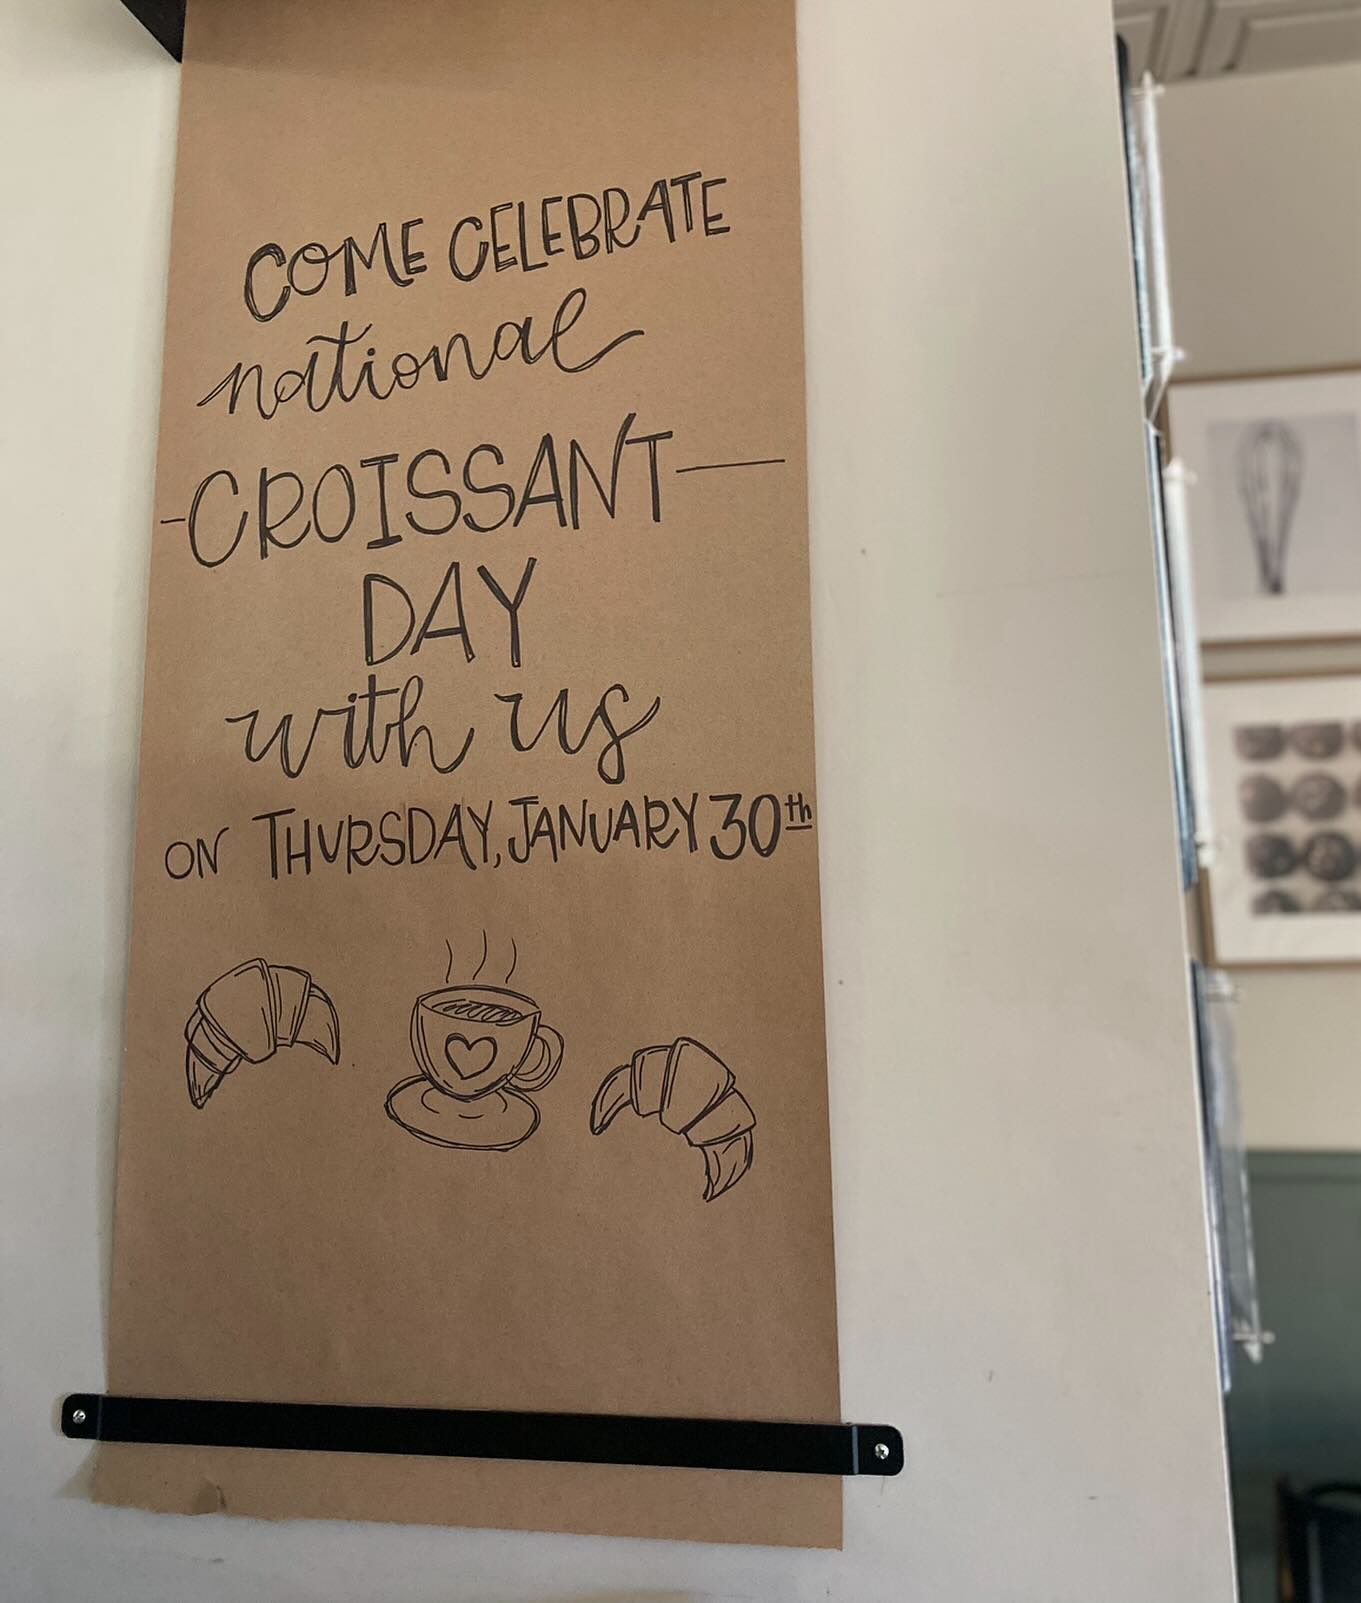 COME CELEBRATE
national
-CROISSANT—
DAY
with us
ON THURSDAY, JANUARY 30th